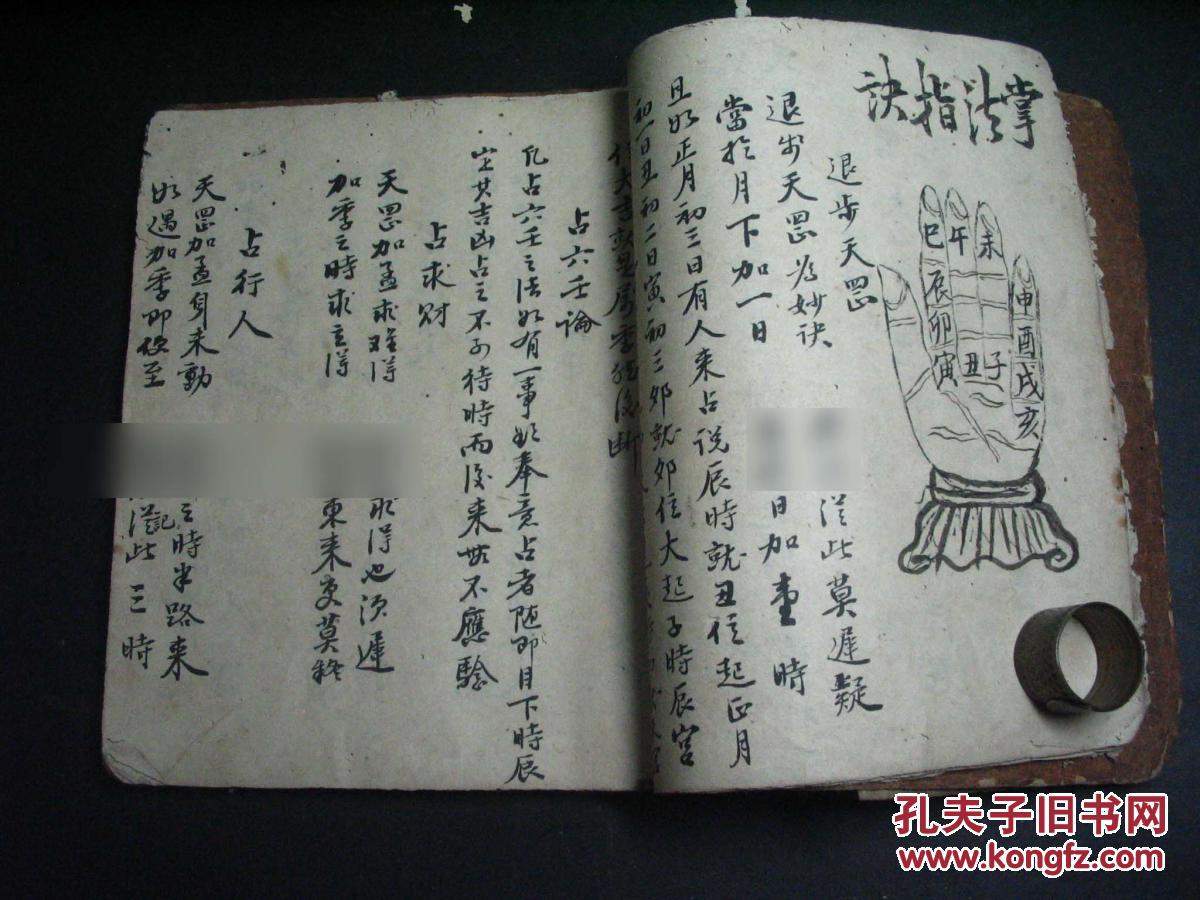 掌法指訣
巳 午 未
辰 申
卯 酉
寅 丑 子 戌
亥
退步天罡
從此莫遲疑
退步天罡為妙訣
當於月下加一日
日加臺時
且如正月初三日有人來占說辰時就丑位起正月
初一日丑初二日寅初三卯就卯位大起子時辰宮
占六壬論
凡占六壬之法如有一事如奉意占者随即目下時辰
定其吉凶占之不可待時而後來無不應驗
占求财
天罡加孟求难得
取得也須遲
加季之時求立得
東来更莫
占行人
天罡加孟身未動
之時半路来
如遇加季即便至
從此三時
記
孔夫子旧书网
www.kongfz.com